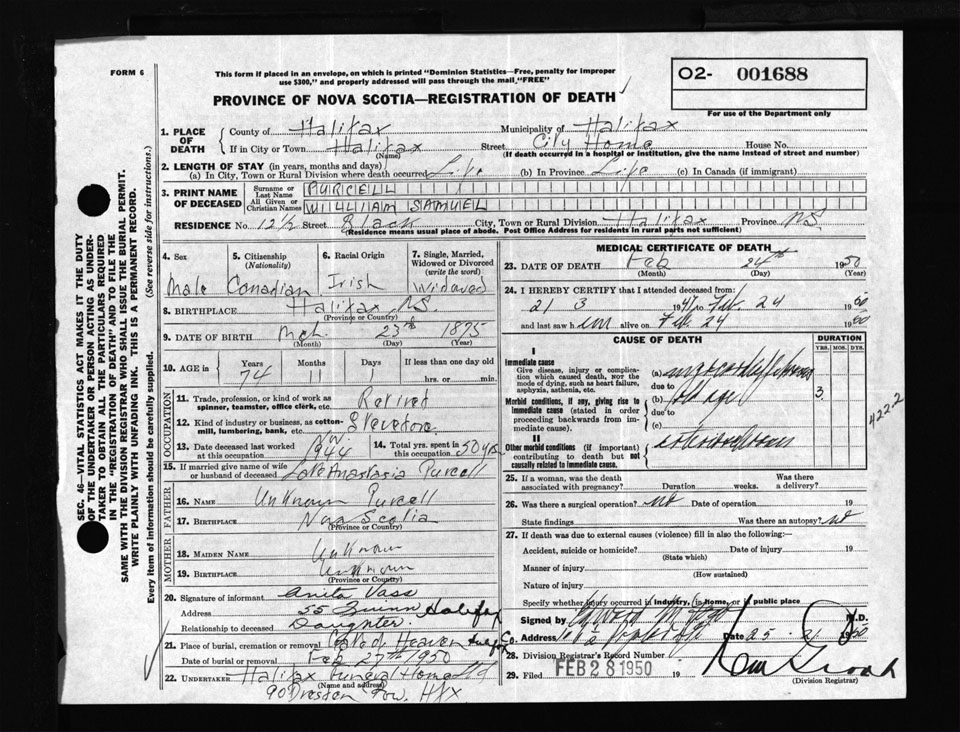 FORM 6
This form if placed in an envelope, on which is printed "Dominion Statistics—Free, penalty for improper
use $300," and properly addressed will pass through the mail "FREE"
PROVINCE OF NOVA SCOTIA—REGISTRATION OF DEATH
O2- 001688
For use of the Department only
1. PLACE OF DEATH County of Halifax Municipality of Halifax
If in City or Town Halifax (Name) Street City Home House No.
(If death occurred in a hospital or institution, give the name instead of street and number)
2. LENGTH OF STAY (in years, months and days)
(a) In City, Town or Rural Division where death occurred Life (b) In Province Life (c) In Canada (if immigrant)
3. PRINT NAME OF DECEASED Surname or Last Name PURCELL
All Given or Christian Names WILLIAM SAMUEL
RESIDENCE No. 12½ Street Black City, Town or Rural Division Halifax Province NS
(Residence means usual place of abode. Post Office Address for residents in rural parts not sufficient)
4. Sex 5. Citizenship (Nationality) 6. Racial Origin 7. Single, Married, Widowed or Divorced (write the word)
Male Canadian Irish Widowed
8. BIRTHPLACE Halifax NS.
(Province or Country)
9. DATE OF BIRTH Mch 23rd 1875
(Month) (Day) (Year)
10. AGE in Years Months Days If less than one day old
74 11 1 hrs. or min.
OCCUPATION
11. Trade, profession or kind of work as spinner, teamster, office clerk, etc. Retired
12. Kind of industry or business, as cotton-mill, lumbering, bank, etc. Stevedore
13. Date deceased last worked at this occupation Nov. 1944 14. Total yrs. spent in this occupation 50 yrs
15. If married give name of wife or husband of deceased Late Anastasia Purcell
FATHER
16. NAME Unknown Purcell
17. BIRTHPLACE Nova Scotia
(Province or Country)
MOTHER
18. MAIDEN NAME Unknown
19. BIRTHPLACE Unknown
(Province or Country)
20. Signature of informant Anita Vass
Address 55 Quinn Halifax
Relationship to deceased Daughter
21. Place of burial, cremation or removal Gate of Heaven Halifax Co.
Date of burial or removal Feb 27th 1950
22. UNDERTAKER Halifax Funeral Home Ltd
(Name and address)
90 Dresden Row. Hfx
MEDICAL CERTIFICATE OF DEATH
23. DATE OF DEATH Feb 24th 1950
(Month) (Day) (Year)
24. I HEREBY CERTIFY that I attended deceased from:
21 3 1947 to Feb. 24 1950
and last saw him alive on Feb. 24 1950
CAUSE OF DEATH
DURATION
YRS. MOS. DYS.
I
Immediate cause
Give disease, injury or complication which caused death, NOT the mode of dying, such as heart failure, asphyxia, asthenia, etc.
(a)
due to
Morbid conditions, if any, giving rise to immediate cause (stated in order proceeding backwards from immediate cause).
(b) old age 3
due to
(c)
II
Other morbid conditions (if important) contributing to death but not causally related to immediate cause.
422.2
25. If a woman, was the death associated with pregnancy? Duration weeks. Was there a delivery?
26. Was there a surgical operation? No Date of operation 19
State findings Was there an autopsy? No
27. If death was due to external causes (violence) fill in also the following:—
Accident, suicide or homicide? Date of injury 19
(State which)
Manner of injury
(How sustained)
Nature of injury
Specify whether injury occurred in industry, in home, or in public place
Signed by M.D.
Address Date 25 · 2 1950
28. Division Registrar's Record Number
29. Filed FEB 28 1950 19
(Division Registrar)
SEC. 46—VITAL STATISTICS ACT MAKES IT THE DUTY
OF THE UNDERTAKER OR PERSON ACTING AS UNDER-
TAKER TO OBTAIN ALL THE PARTICULARS REQUIRED
IN THE "REGISTRATION OF DEATH" AND TO FILE THE
SAME WITH THE DIVISION REGISTRAR WHO SHALL ISSUE THE BURIAL PERMIT.
WRITE PLAINLY WITH UNFADING INK. THIS IS A PERMANENT RECORD.
Every item of information should be carefully supplied. (See reverse side for instructions.)